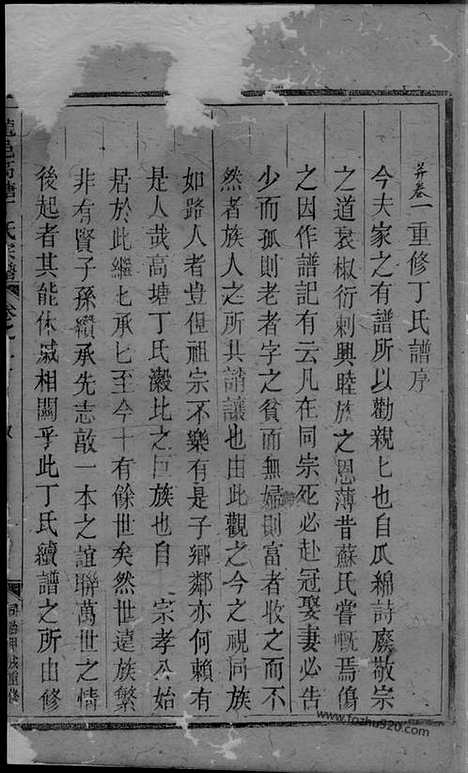 弁卷一 重修丁氏譜序
今夫家之有譜所以勸親匕也自瓜綿詩廢敬宗
之道衰椒衍刺興睦族之恩薄昔蘇氏嘗慨焉傷
之因作譜記有云凡在同宗死必赴冠娶妻必告
少而孤則老者字之貧而無婦則富者收之而不
然者族人之所共誚讓也由此觀之今之視同族
如路人者豈俔祖宗不樂有是子鄉鄰亦何賴有
是人哉高塘丁氏瀫比之巨族也自 宗孝公始
居於此繼匕承匕至今十有餘世矣然世遠族繁
非有賢子孫纘承先志敦一本之誼聯萬世之情
後起者其能休戚相關乎此丁氏續譜之所由修
邑高塘丁氏宗譜 卷之一
同治甲戌重修
www.fozhu920.com